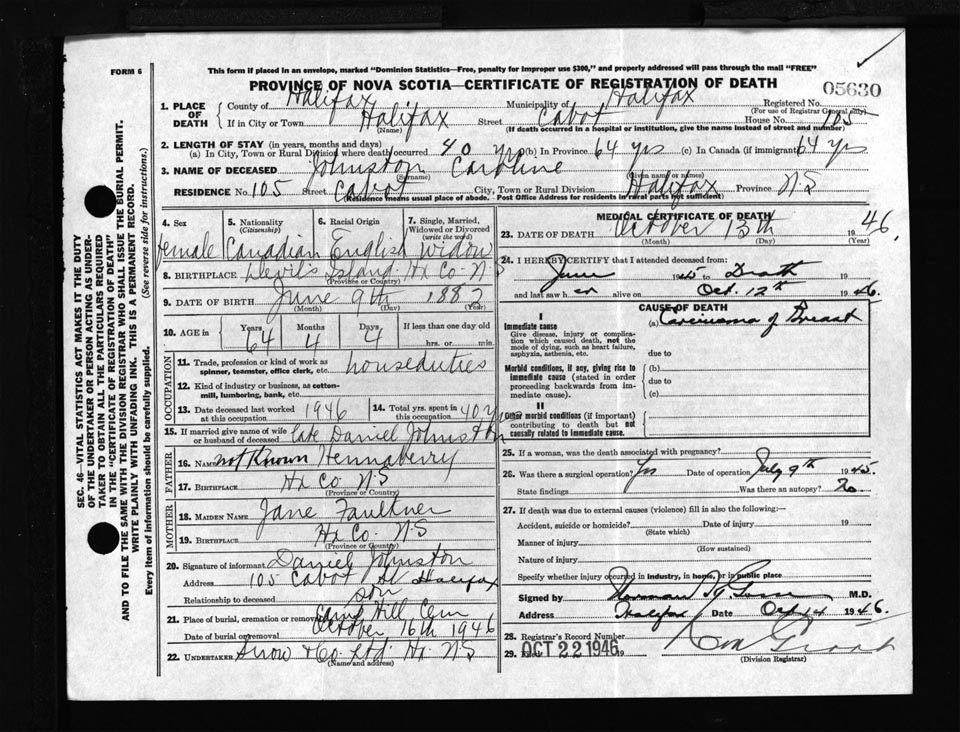 FORM 6
This form if placed in an envelope, marked "Dominion Statistics—Free, penalty for improper use $300," and properly addressed will pass through the mail "FREE"
PROVINCE OF NOVA SCOTIA—CERTIFICATE OF REGISTRATION OF DEATH
05630
1. PLACE OF DEATH County of Halifax Municipality of Halifax Registered No.
(For use of Registrar General only)
If in City or Town Halifax Street Cabot House No. 105
(Name) (If death occurred in a hospital or institution, give the name instead of street and number)
2. LENGTH OF STAY (in years, months and days)
(a) In City, Town or Rural Division where death occurred 40 yrs (b) In Province 64 yrs (c) In Canada (if immigrant) 64 yrs
3. NAME OF DECEASED Johnston Caroline
(Surname) (Given name or names)
RESIDENCE No. 105 Street Cabot City, Town or Rural Division Halifax Province N.S
(Residence means usual place of abode. - Post Office Address for residents in rural parts not sufficient)
4. Sex 5. Nationality (Citizenship) 6. Racial Origin 7. Single, Married, Widowed or Divorced (write the word)
Female Canadian English Widow
8. BIRTHPLACE Devil's Island Hx Co. N-S
(Province or Country)
9. DATE OF BIRTH June 9th 1882
(Month) (Day) (Year)
10. AGE in Years Months Days If less than one day old
64 4 4 hrs. or min.
OCCUPATION
11. Trade, profession or kind of work as spinner, teamster, office clerk, etc. houseduties
12. Kind of industry or business, as cotton-mill, lumbering, bank, etc.
13. Date deceased last worked at this occupation 1946 14. Total yrs. spent in this occupation 40 yrs
15. If married give name of wife or husband of deceased late Daniel Johnston
FATHER
16. NAME not Known Hennaberry
17. BIRTHPLACE Hx Co N-S
(Province or Country)
MOTHER
18. MAIDEN NAME Jane Faulkner
19. BIRTHPLACE Hx Co. N-S
(Province or Country)
20. Signature of informant Daniel Johnston
Address 105 Cabot St Halifax
Relationship to deceased son
21. Place of burial, cremation or removal Hill Cem
Date of burial or removal October 16th 1946
22. UNDERTAKER Snow & Co. Ltd. Hx. N-S
(Name and address)
MEDICAL CERTIFICATE OF DEATH
23. DATE OF DEATH October 13th 1946.
(Month) (Day) (Year)
24. I HEREBY CERTIFY that I attended deceased from:
June 1945 to Death 19
and last saw her alive on Oct. 12th 1946.
CAUSE OF DEATH
I
Immediate cause (a) Carcinoma of Breast
Give disease, injury or complication which caused death, not the mode of dying, such as heart failure, asphyxia, asthenia, etc.
due to
Morbid conditions, if any, giving rise to immediate cause (stated in order proceeding backwards from immediate cause).
(b)
due to
(c)
II
Other morbid conditions (if important) contributing to death but not causally related to immediate cause.
25. If a woman, was the death associated with pregnancy?
26. Was there a surgical operation? Yes Date of operation July 9th 1945.
State findings Was there an autopsy? No.
27. If death was due to external causes (violence) fill in also the following:—
Accident, suicide or homicide? Date of injury 19
(State which)
Manner of injury
(How sustained)
Nature of injury
Specify whether injury occurred in industry, in home, or in public place
Signed by Norman M.D.
Address Halifax Date Oct 14 1946.
28. Registrar's Record Number
29. Filed OCT 22 1946 19
(Division Registrar)
SEC. 46—VITAL STATISTICS ACT MAKES IT THE DUTY
OF THE UNDERTAKER OR PERSON ACTING AS UNDER-
TAKER TO OBTAIN ALL THE PARTICULARS REQUIRED
IN THE "CERTIFICATE OF REGISTRATION OF DEATH"
AND TO FILE THE SAME WITH THE DIVISION REGISTRAR WHO SHALL ISSUE THE BURIAL PERMIT.
WRITE PLAINLY WITH UNFADING INK. THIS IS A PERMANENT RECORD.
Every item of information should be carefully supplied. (See reverse side for instructions.)